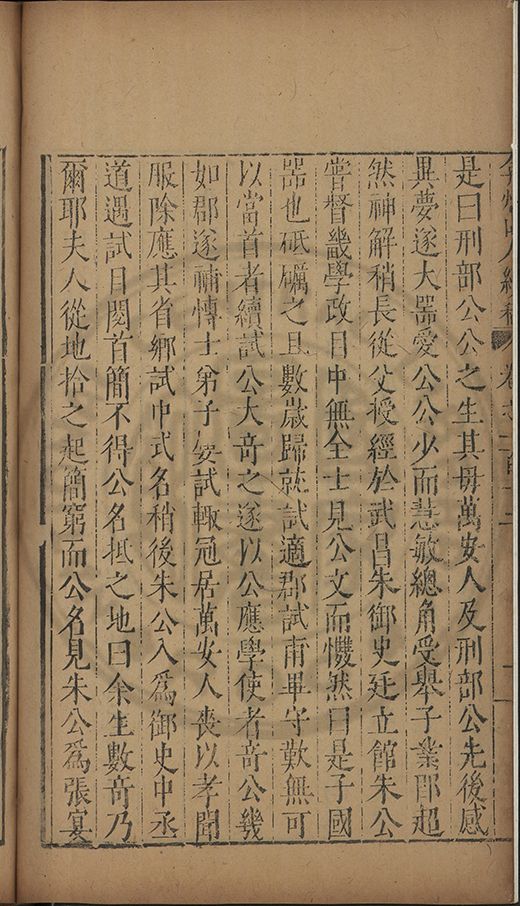 是曰刑部公公之生其母萬安人及刑部公先後感
異夢遂大器愛公公少而慧敏總角受舉子業即超
然神解稍長從父授經於武昌朱御史廷立館朱公
嘗督畿學政目中無全士見公文而戄然曰是子國
器也砥礪之且數歲歸就試適郡試甫畢守歎無可
以當首者續試公大奇之遂以公應學使者奇公幾
如郡遂補博士弟子 試輒冠居萬安人喪以孝聞
服除應其省鄉試中式名稍後朱公入為御史中丞
道遇試日閱首簡不得公名抵之地曰余生數奇乃
爾耶夫人從地拾之起簡窮而公名見朱公為張宴